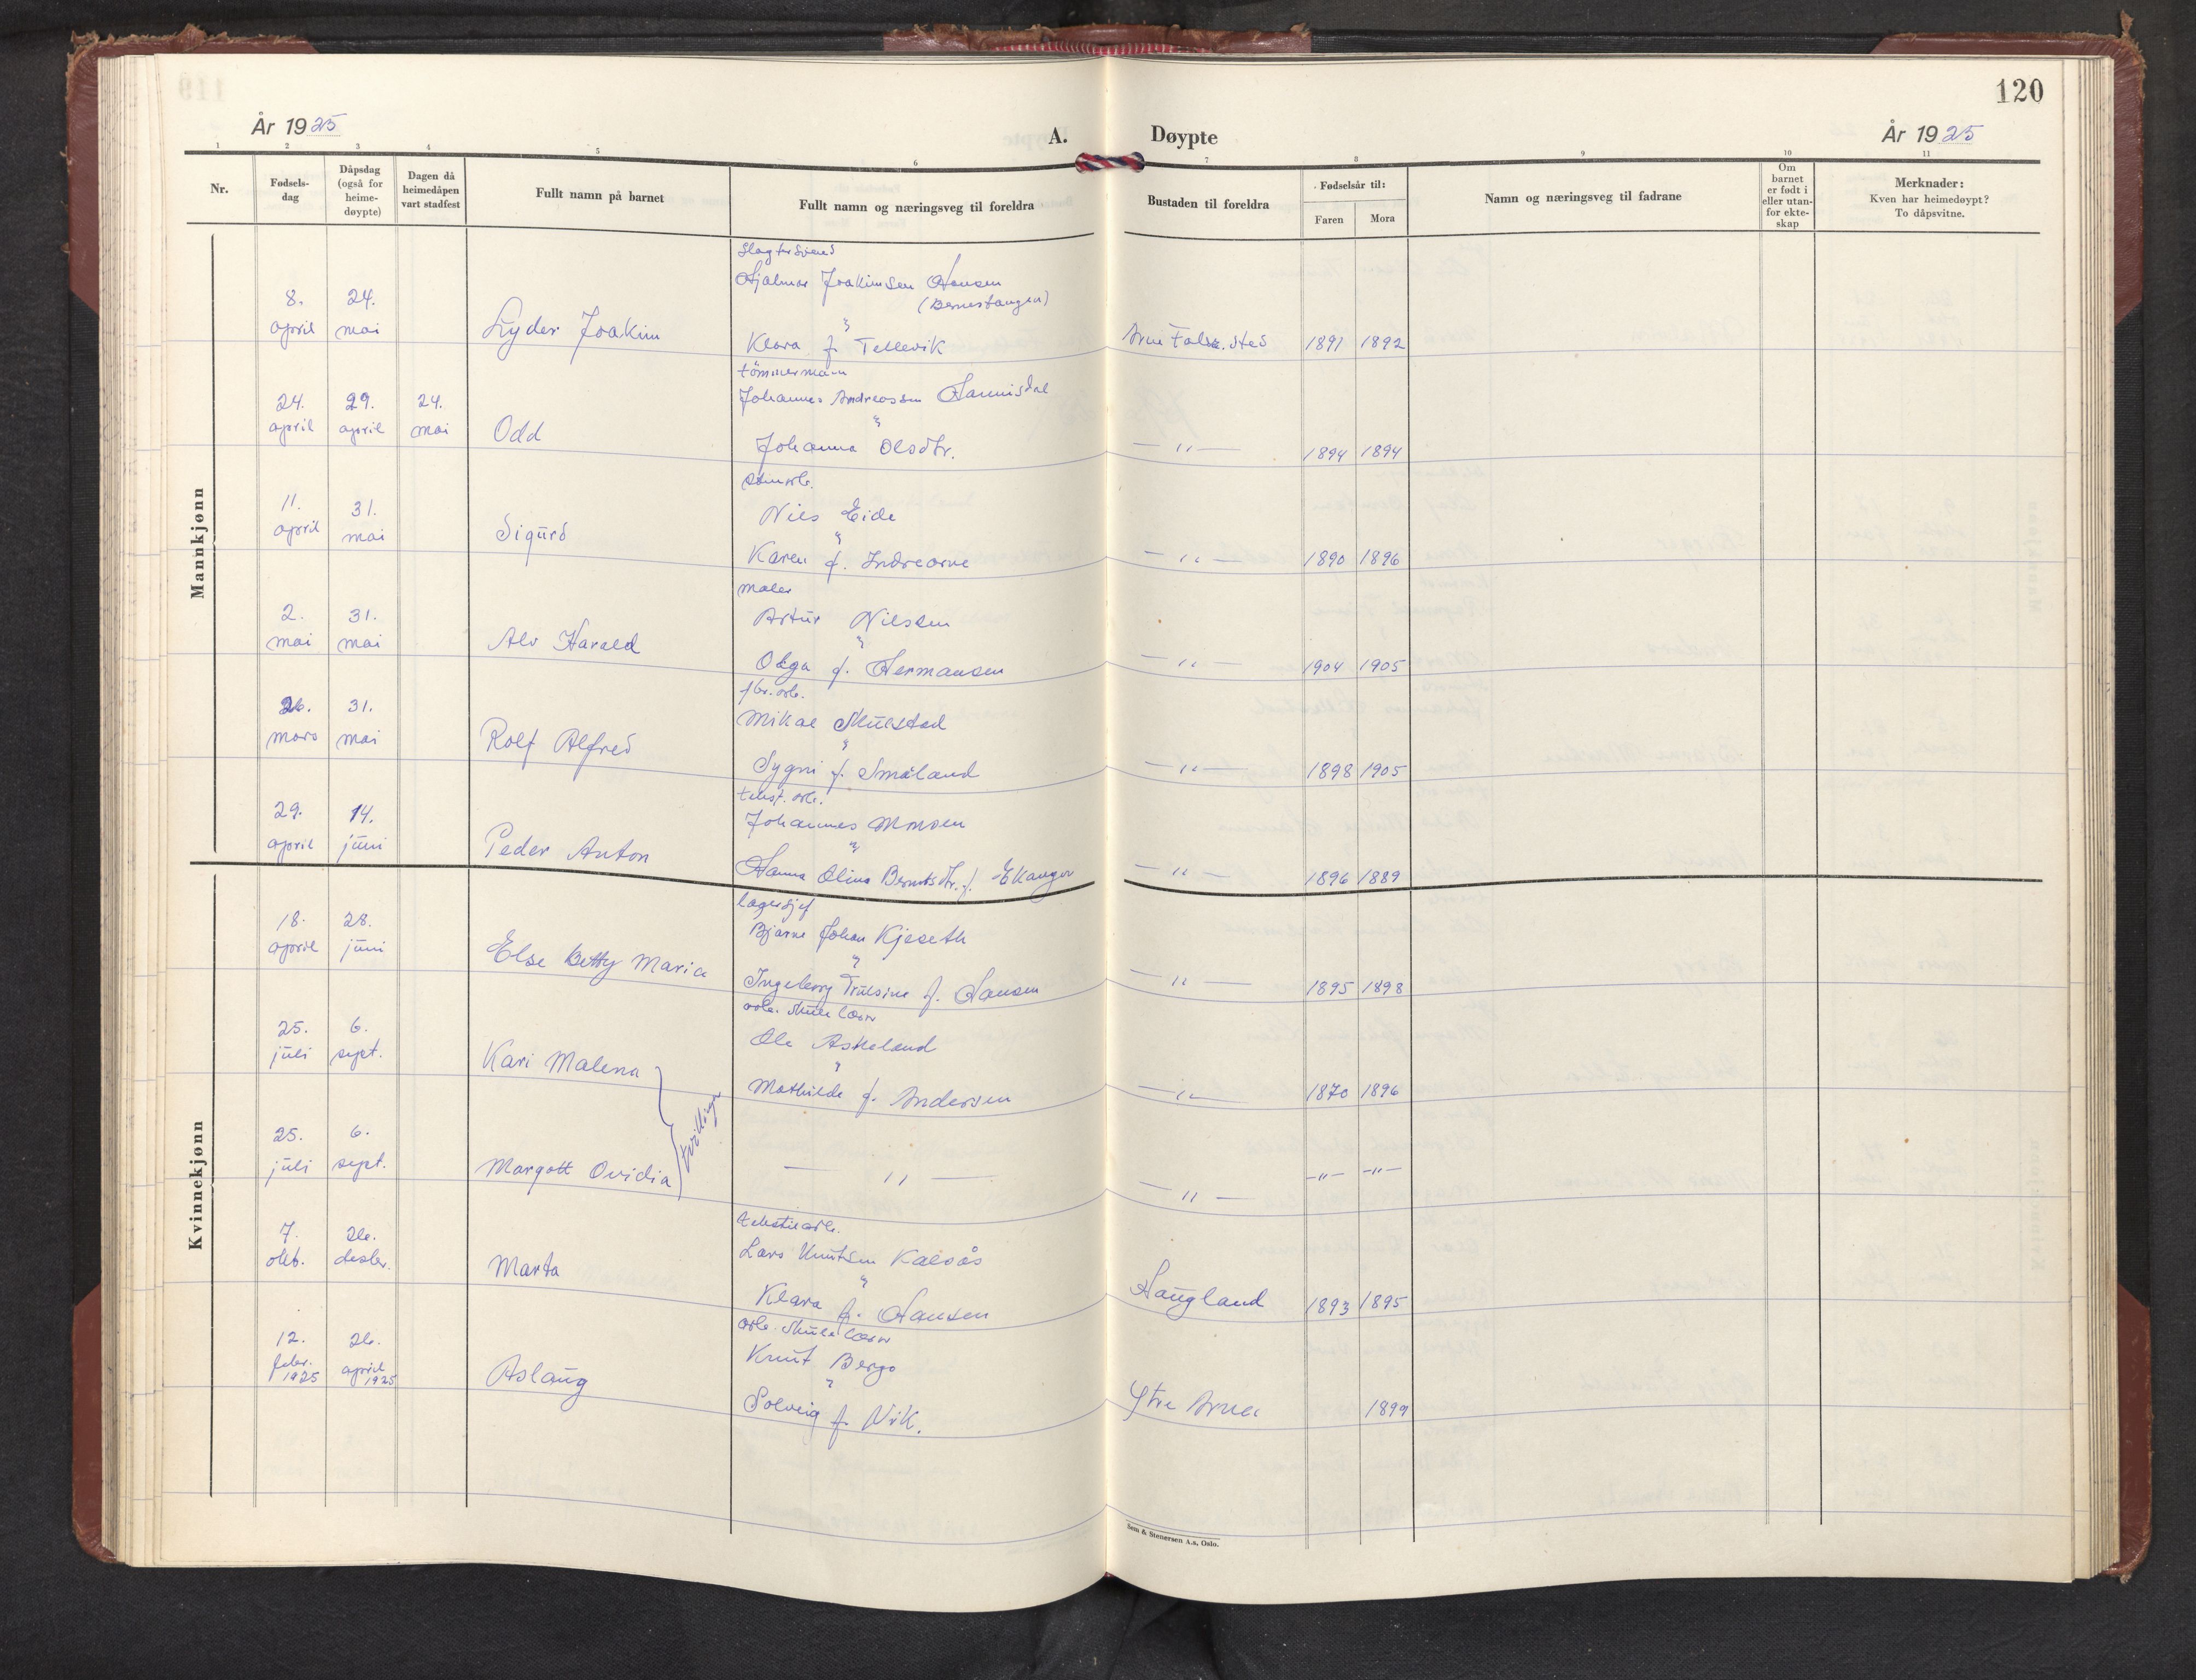 120
År 1925
A. Døypte
År 1925
1 2 3 4 5 6 7 8 9 10 11
Nr.
Fødsels-
dag
Dåpsdag
(også for
heime-
døypte)
Dagen då
heimedåpen
vart stadfest
Fullt namn på barnet
Fullt namn og næringsveg til foreldra
Bustaden til foreldra
Fødselsår til:
Faren Mora
Namn og næringsveg til fadrane
Om
barnet
er født i
eller utan-
for ekte-
skap
Merknader:
Kven har heimedøypt?
To dåpsvitne.
Mannkjønn
Slagtersvend
Hjalmar Joakimsen Hansen
8. 24.
april mai
Lyder Joakim
Klara f. Tellevik
Arne 1891 1892
tömmermann
Johannes Andreassen Hannisdal
24. 29. 24.
april april mai
Odd
Johanna Olsdtr.
— " — 1894 1894
Nils Eide
11. 31.
april mai
Sigurd
Karen f. Indrearne
— " — 1890 1896
maler
Artur Nilsen
2. 31.
mai mai
Alv Harald
Olga f. Hermansen
— " — 1904 1905
fbr. arb.
Mikal Skulstad
26. 31.
mars mai
Rolf Alfred
Sygni f. Småland
— " — 1898 1905
tekst. arb.
Johannes Monsen
29. 14.
april juni
Peder Anton
Hanna Olina Berntsdtr. f. Ekanger
— " — 1896 1889
Kvinnekjønn
lagersjef
Bjarne Johan Kjeseth
18. 28.
april juni
Else Betty Maria
Ingeborg Trulsine f. Hansen
— " — 1895 1898
arb. skule lærar
Ole Askeland
25. 6.
juli sept.
Kari Malena
Mathilde f. Andersen
— " — 1870 1896
tvillingar
25. 6.
juli sept.
Margott Ovidia
— " —
— " — -"- -"-
tekstilarb.
Lars Knutsen Kalsås
7. 26.
okt. desbr.
Marta
Klara f. Hansen
Haugland 1893 1895
arb. skule lærar
Knut Bergo
12. 26.
febr. april
1925 1925
Aslaug
Solveig f. Vik.
Ytre Arna 1899
Sem & Stenersen A.s, Oslo.